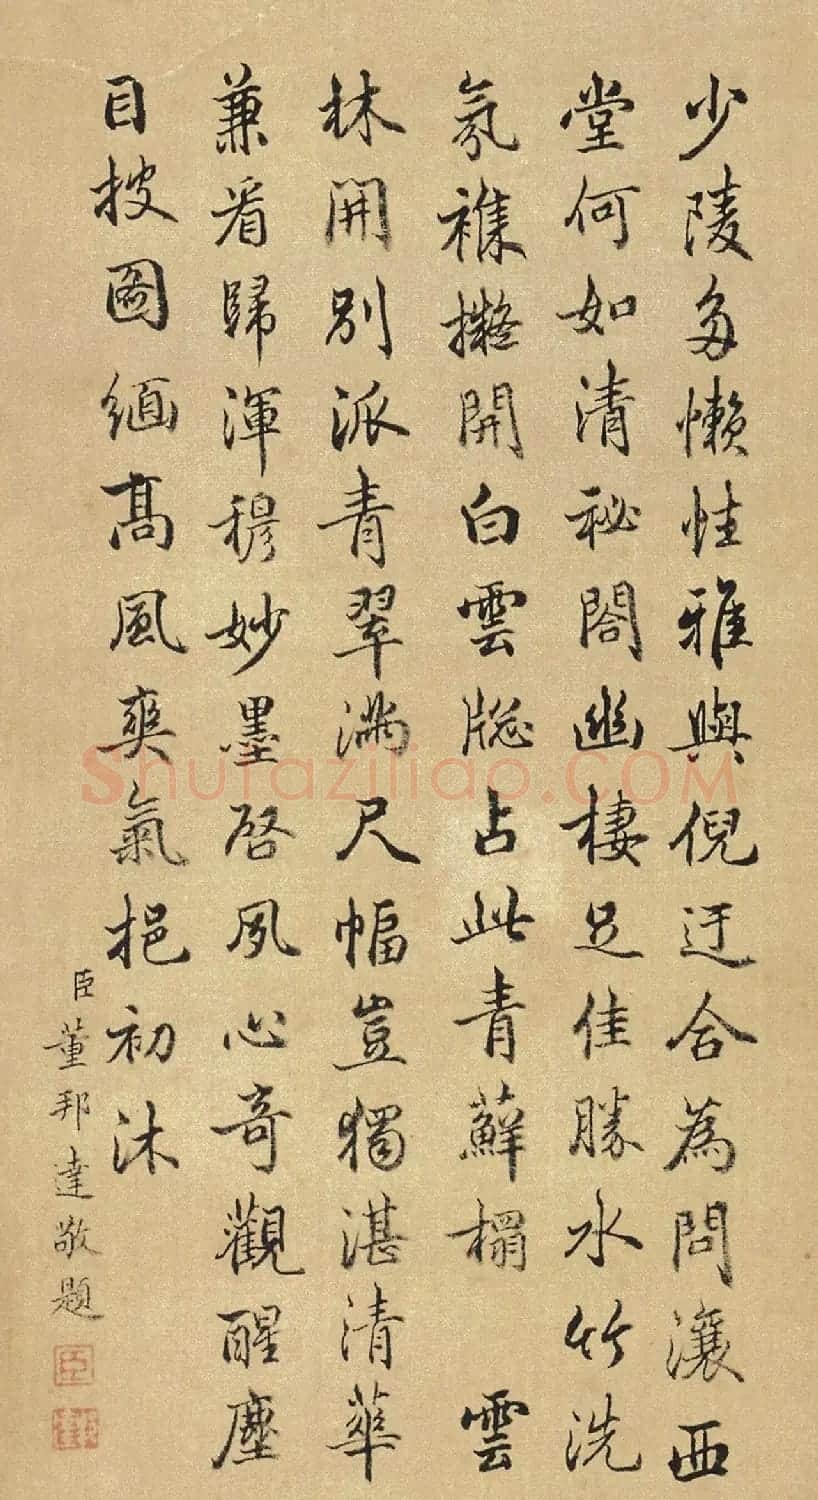 少陵多懶性雅與倪迂合為問瀼西
堂何如清祕閣幽棲足佳勝水竹洗
氛襍擬開白雲牕占此青蘚榻 雲
林開別派青翠滿尺幅豈獨湛清華
兼看歸渾穆妙墨啓夙心奇觀醒塵
目披圖緬髙風爽氣挹初沐
臣董邦達敬題
臣
Shufaziliao.COM